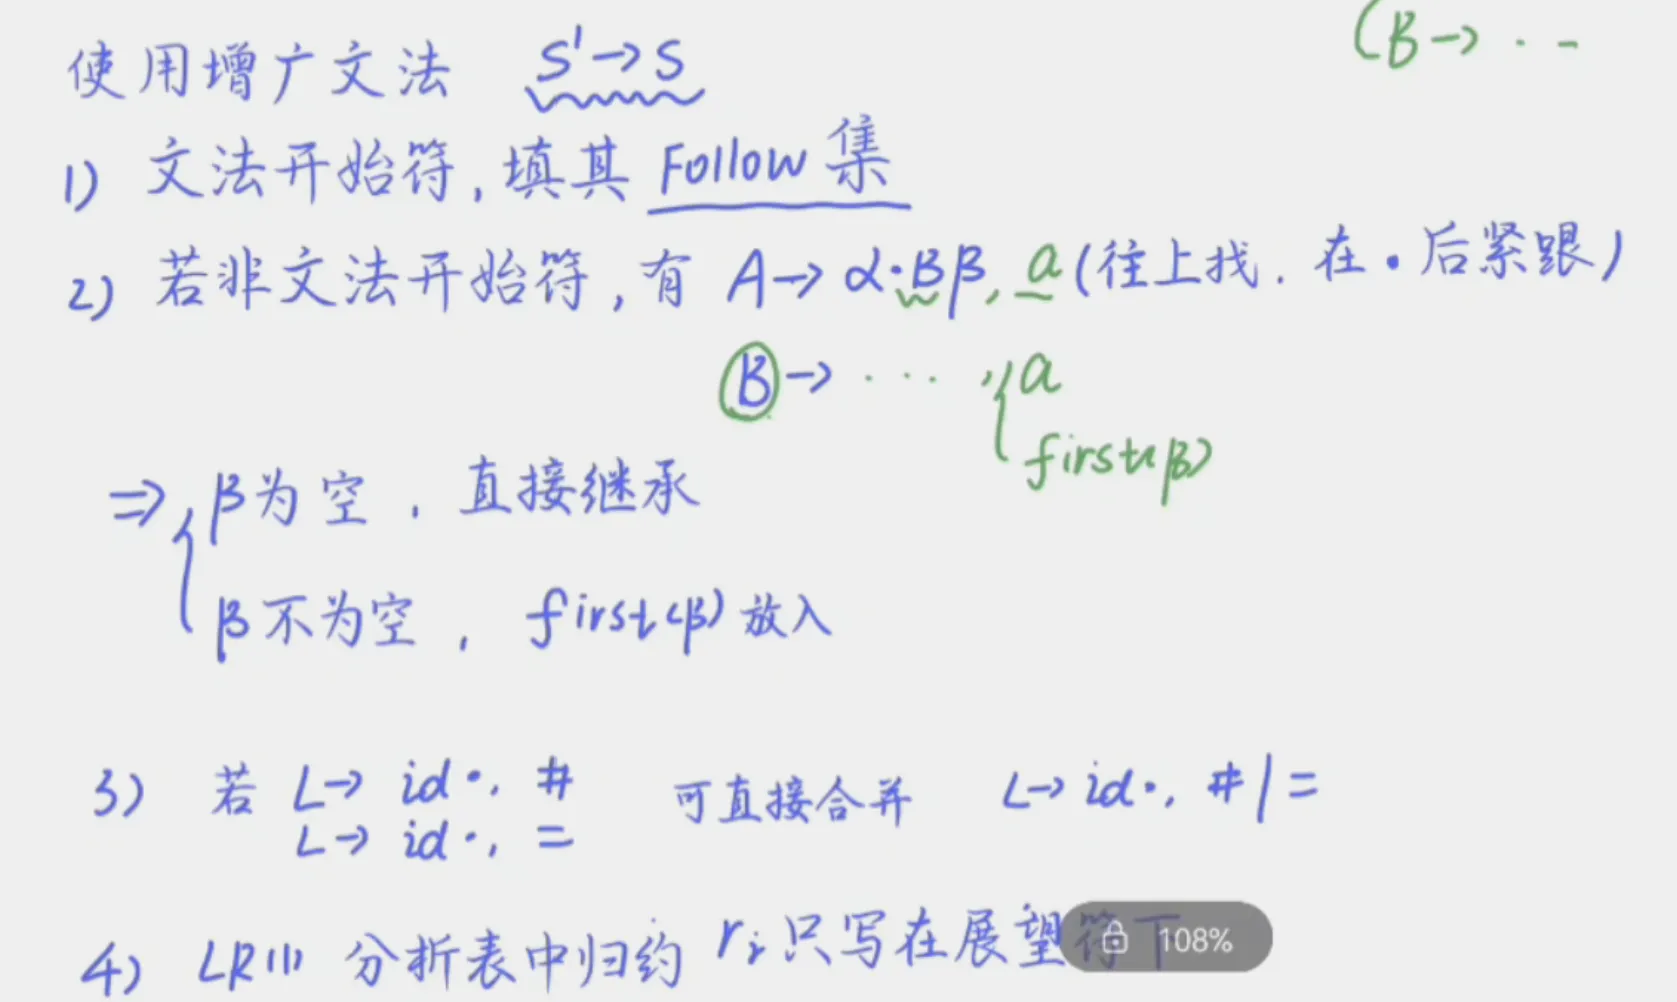 (B→··-
使用增广文法 S'→S
1) 文法开始符,填其 Follow集
2) 若非文法开始符,有 A→α·Bβ, a (往上找. 在·后紧跟)
B→ ··· , a
first(β)
⇒ β为空, 直接继承
β不为空, first(β)放入
3) 若 L→ id·, # 可直接合并 L→id·, #|=
L→ id·, =
4) LR(1) 分析表中归约 ri 只写在展望符下
108%